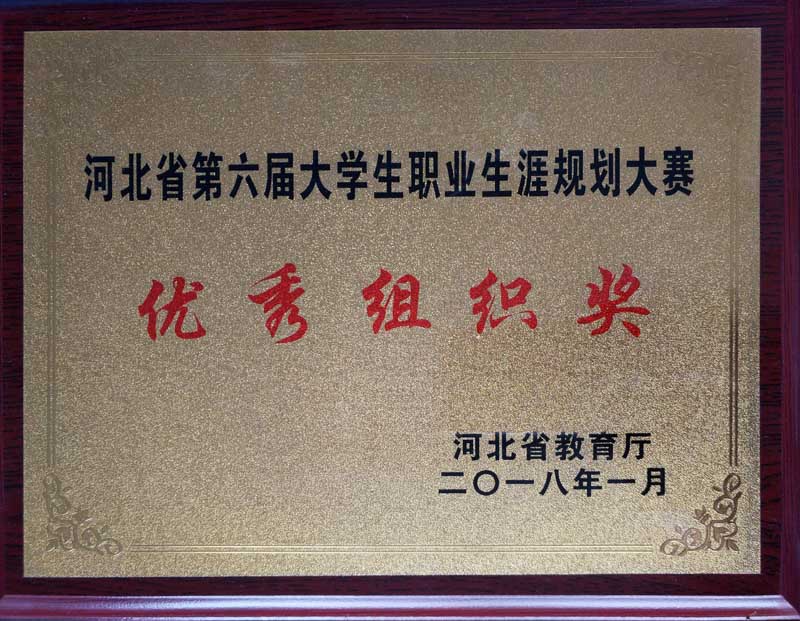 河北省第六届大学生职业生涯规划大赛
优秀组织奖
河北省教育厅
二〇一八年一月